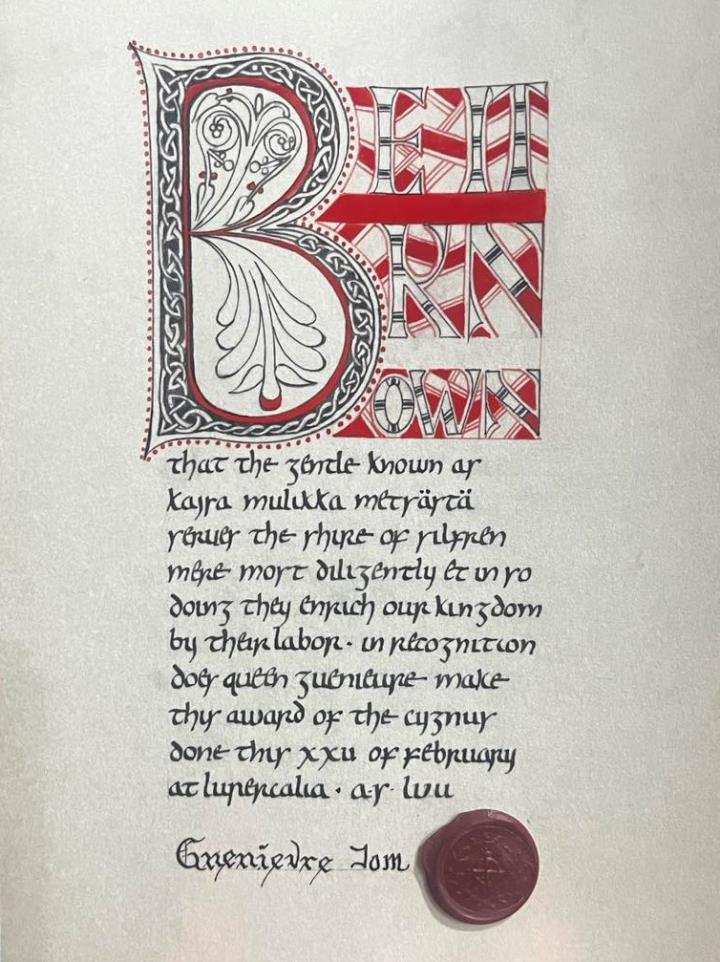 BE IT
KN
OWN
that the gentle known as
kajsa mulikka metsästä
serves the shire of silfren
mere most diligently et in so
doing they enrich our kingdom
by their labor · in recognition
does queen guenievre make
this award of the cygnus
done this xxv of february
at lupercalia · a·s· lvii
Guenievre